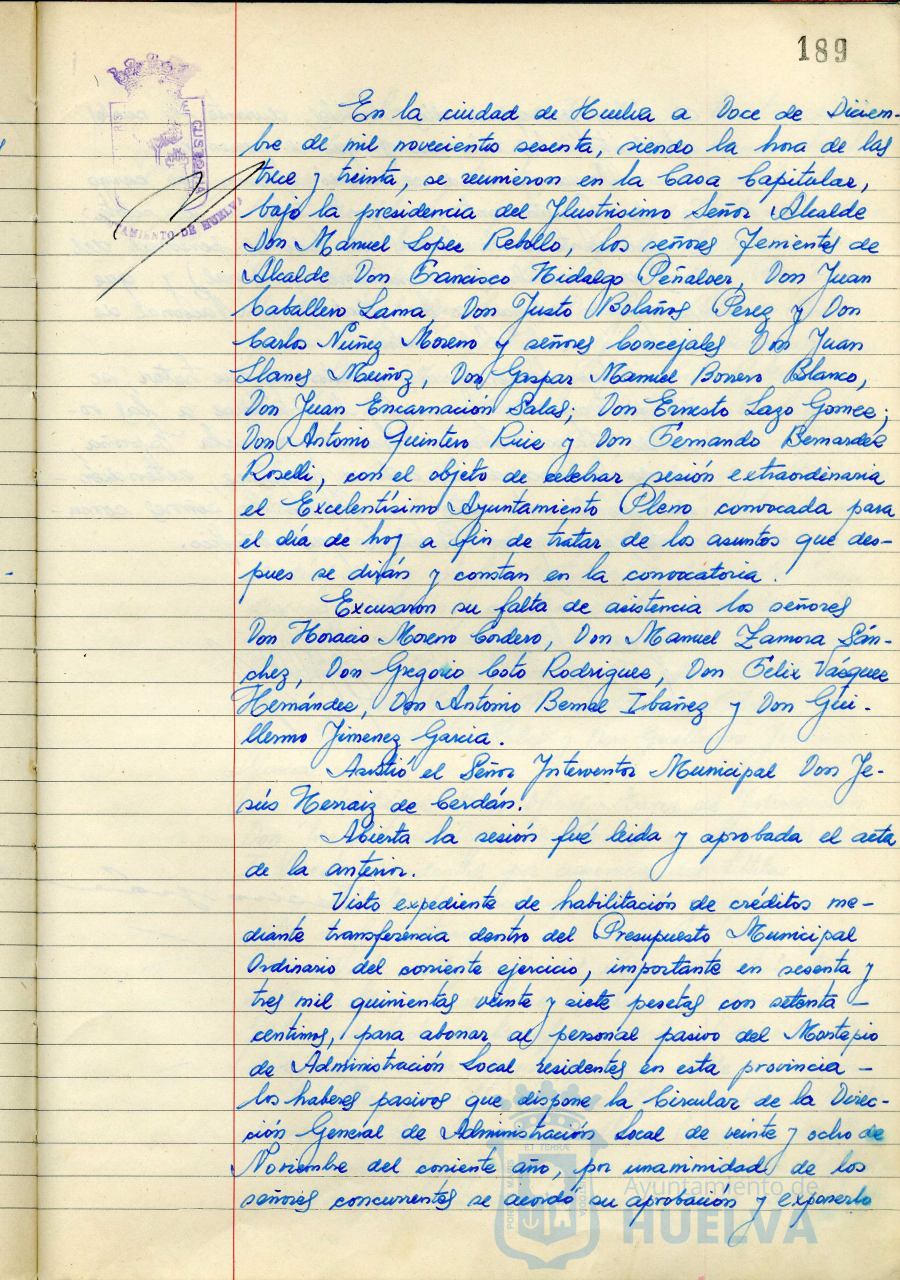 189
En la ciudad de Huelva a Doce de Diciem-
bre de mil novecientos sesenta, siendo la hora de las
trece y treinta, se reunieron en la Casa Capitular,
bajo la presidencia del Ilustrisimo Señor Alcalde
Don Manuel Lopez Rebollo, los señores Tenientes de
Alcalde Don Francisco Hidalgo Peñalver, Don Juan
Caballero Lama, Don Justo Bolaños Perez y Don
Carlos Núñez Moreno y señores Concejales Don Juan
Llanes Muñoz, Don Gaspar Manuel Borrero Blanco,
Don Juan Encarnación Salas; Don Ernesto Lazo Gomez;
Don Antonio Quintero Ruiz y Don Fernando Bernardez
Roselli, con el objeto de celebrar sesión extraordinaria
el Excelentísimo Ayuntamiento Pleno convocada para
el día de hoy a fin de tratar de los asuntos que des-
pues se dirán y constan en la convocatoria.
Excusaron su falta de asistencia los señores
Don Horacio Moreno Cordero, Don Manuel Zamora Sán-
chez, Don Gregorio Coto Rodriguez, Don Felix Vásquez
Hernández, Don Antonio Bernal Ibañez y Don Gui-
llermo Jiménez Garcia.
Asistió el Señor Interventor Municipal Don Je-
sús Herraiz de Cerdán.
Abierta la sesión fué leida y aprobada el acta
de la anterior.
Visto expediente de habilitación de créditos me-
diante transferencia dentro del Presupuesto Municipal
Ordinario del corriente ejercicio, importante en sesenta y
tres mil quinientas veinte y siete pesetas con setenta -
centimos, para abonar al personal pasivo del Montepio
de Administración Local residentes en esta provincia -
los haberes pasivos que dispone la Circular de la Direc-
ción General de Administración Local de veinte y ocho de
Noviembre del corriente año, por unanimidad de los
señores concurrentes se acordó su aprobación y exponerlo
Ayuntamiento de
HUELVA